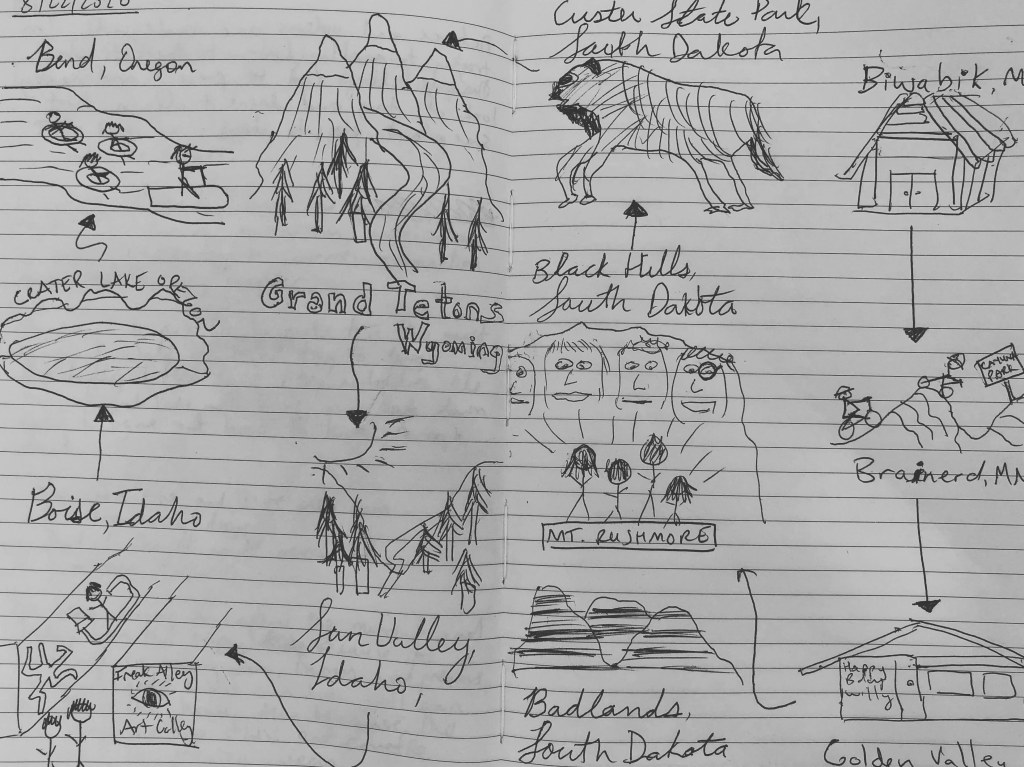 8/22/2020
Bend, Oregon
CRATER LAKE OREGON
Boise, Idaho
Freak Alley
Art Gallery
Grand Tetons
Wyoming
Sun Valley,
Idaho,
Custer State Park,
South Dakota
Black Hills,
South Dakota
MT. RUSHMORE
Badlands,
South Dakota
Biwabik, M
CUYUNA
PARK
Brainerd, MN
Happy
Bday
Willy
Golden Valley